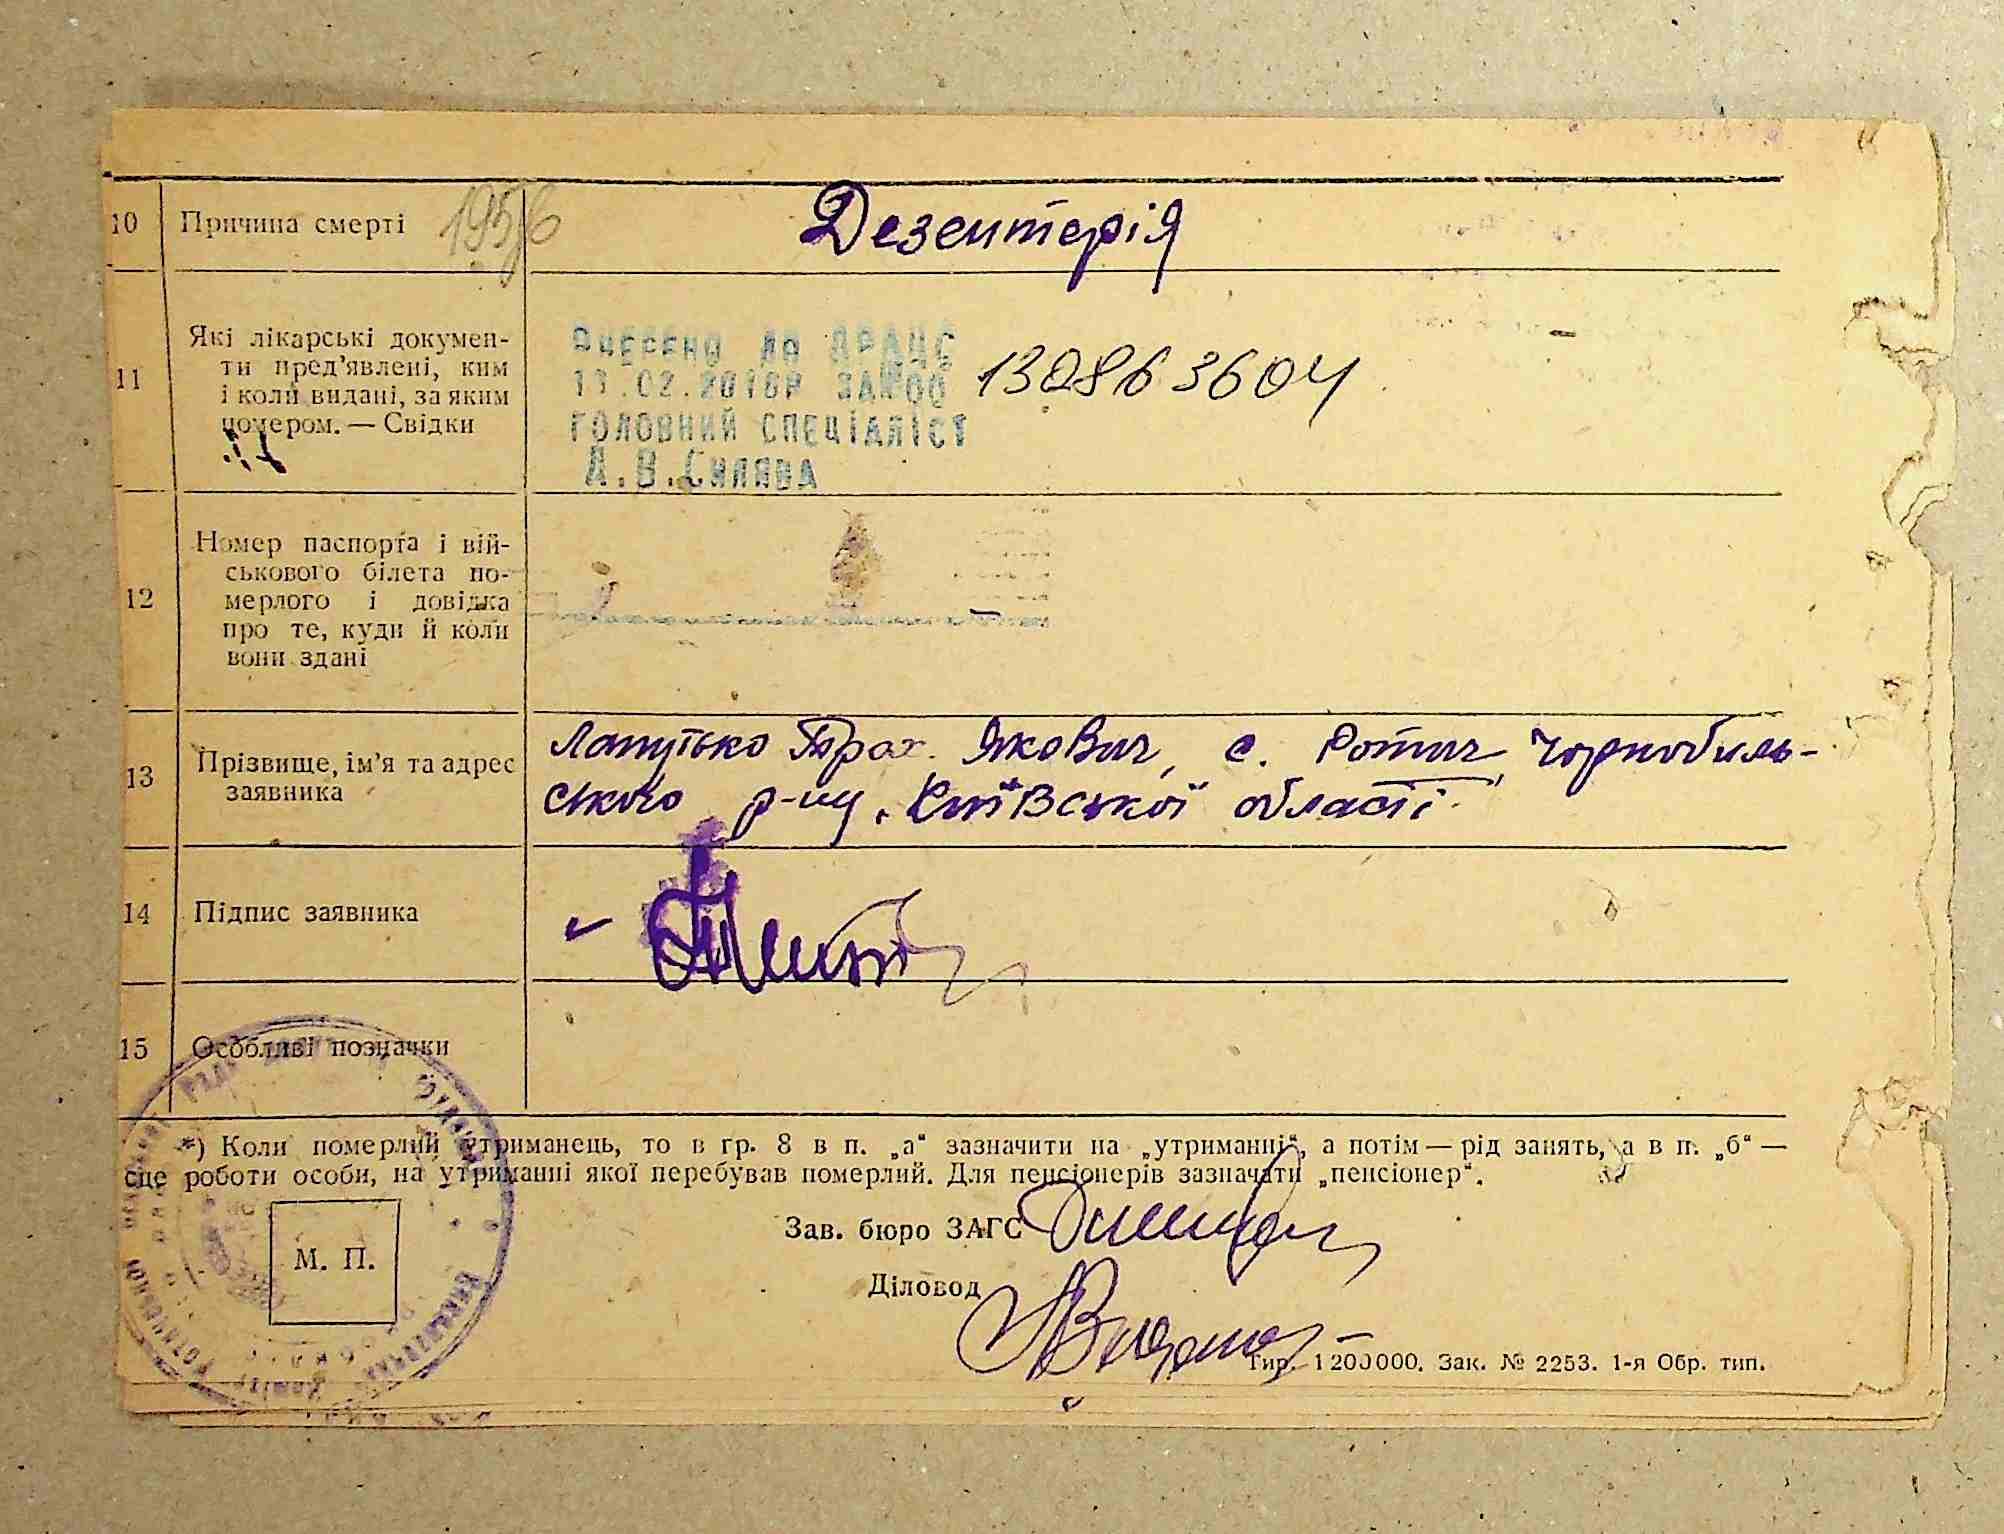 10 Причина смерті 1956 Дезентерія
11 Які лікарські докумен-
ти пред'явлені, ким
і коли видані, за яким
номером. — Свідки
ВНЕСЕНО ДО ДРАЦС
11.02.2016Р 13086 3604
ГОЛОВНИЙ СПЕЦІАЛІСТ
А.В.Силява
12 Номер паспорта і вій-
ськового білета по-
мерлого і довідка
про те, куди й коли
вони здані
13 Прізвище, ім'я та адрес
заявника
Лапутько Яkович, с. Ротич Чорнобиль-
ського р-ну, Київської області
14 Підпис заявника
15 Особливі позначки
*) Коли померлий утриманець, то в гр. 8 в п. „а“ зазначити на „утриманні“, а потім — рід занять, а в п. „б“ —
сце роботи особи, на утриманні якої перебував померлий. Для пенсіонерів зазначати „пенсіонер“.
М. П.
Зав. бюро ЗАГС
Діловод
Тир. 1200000. Зак. № 2253. 1-я Обр. тип.